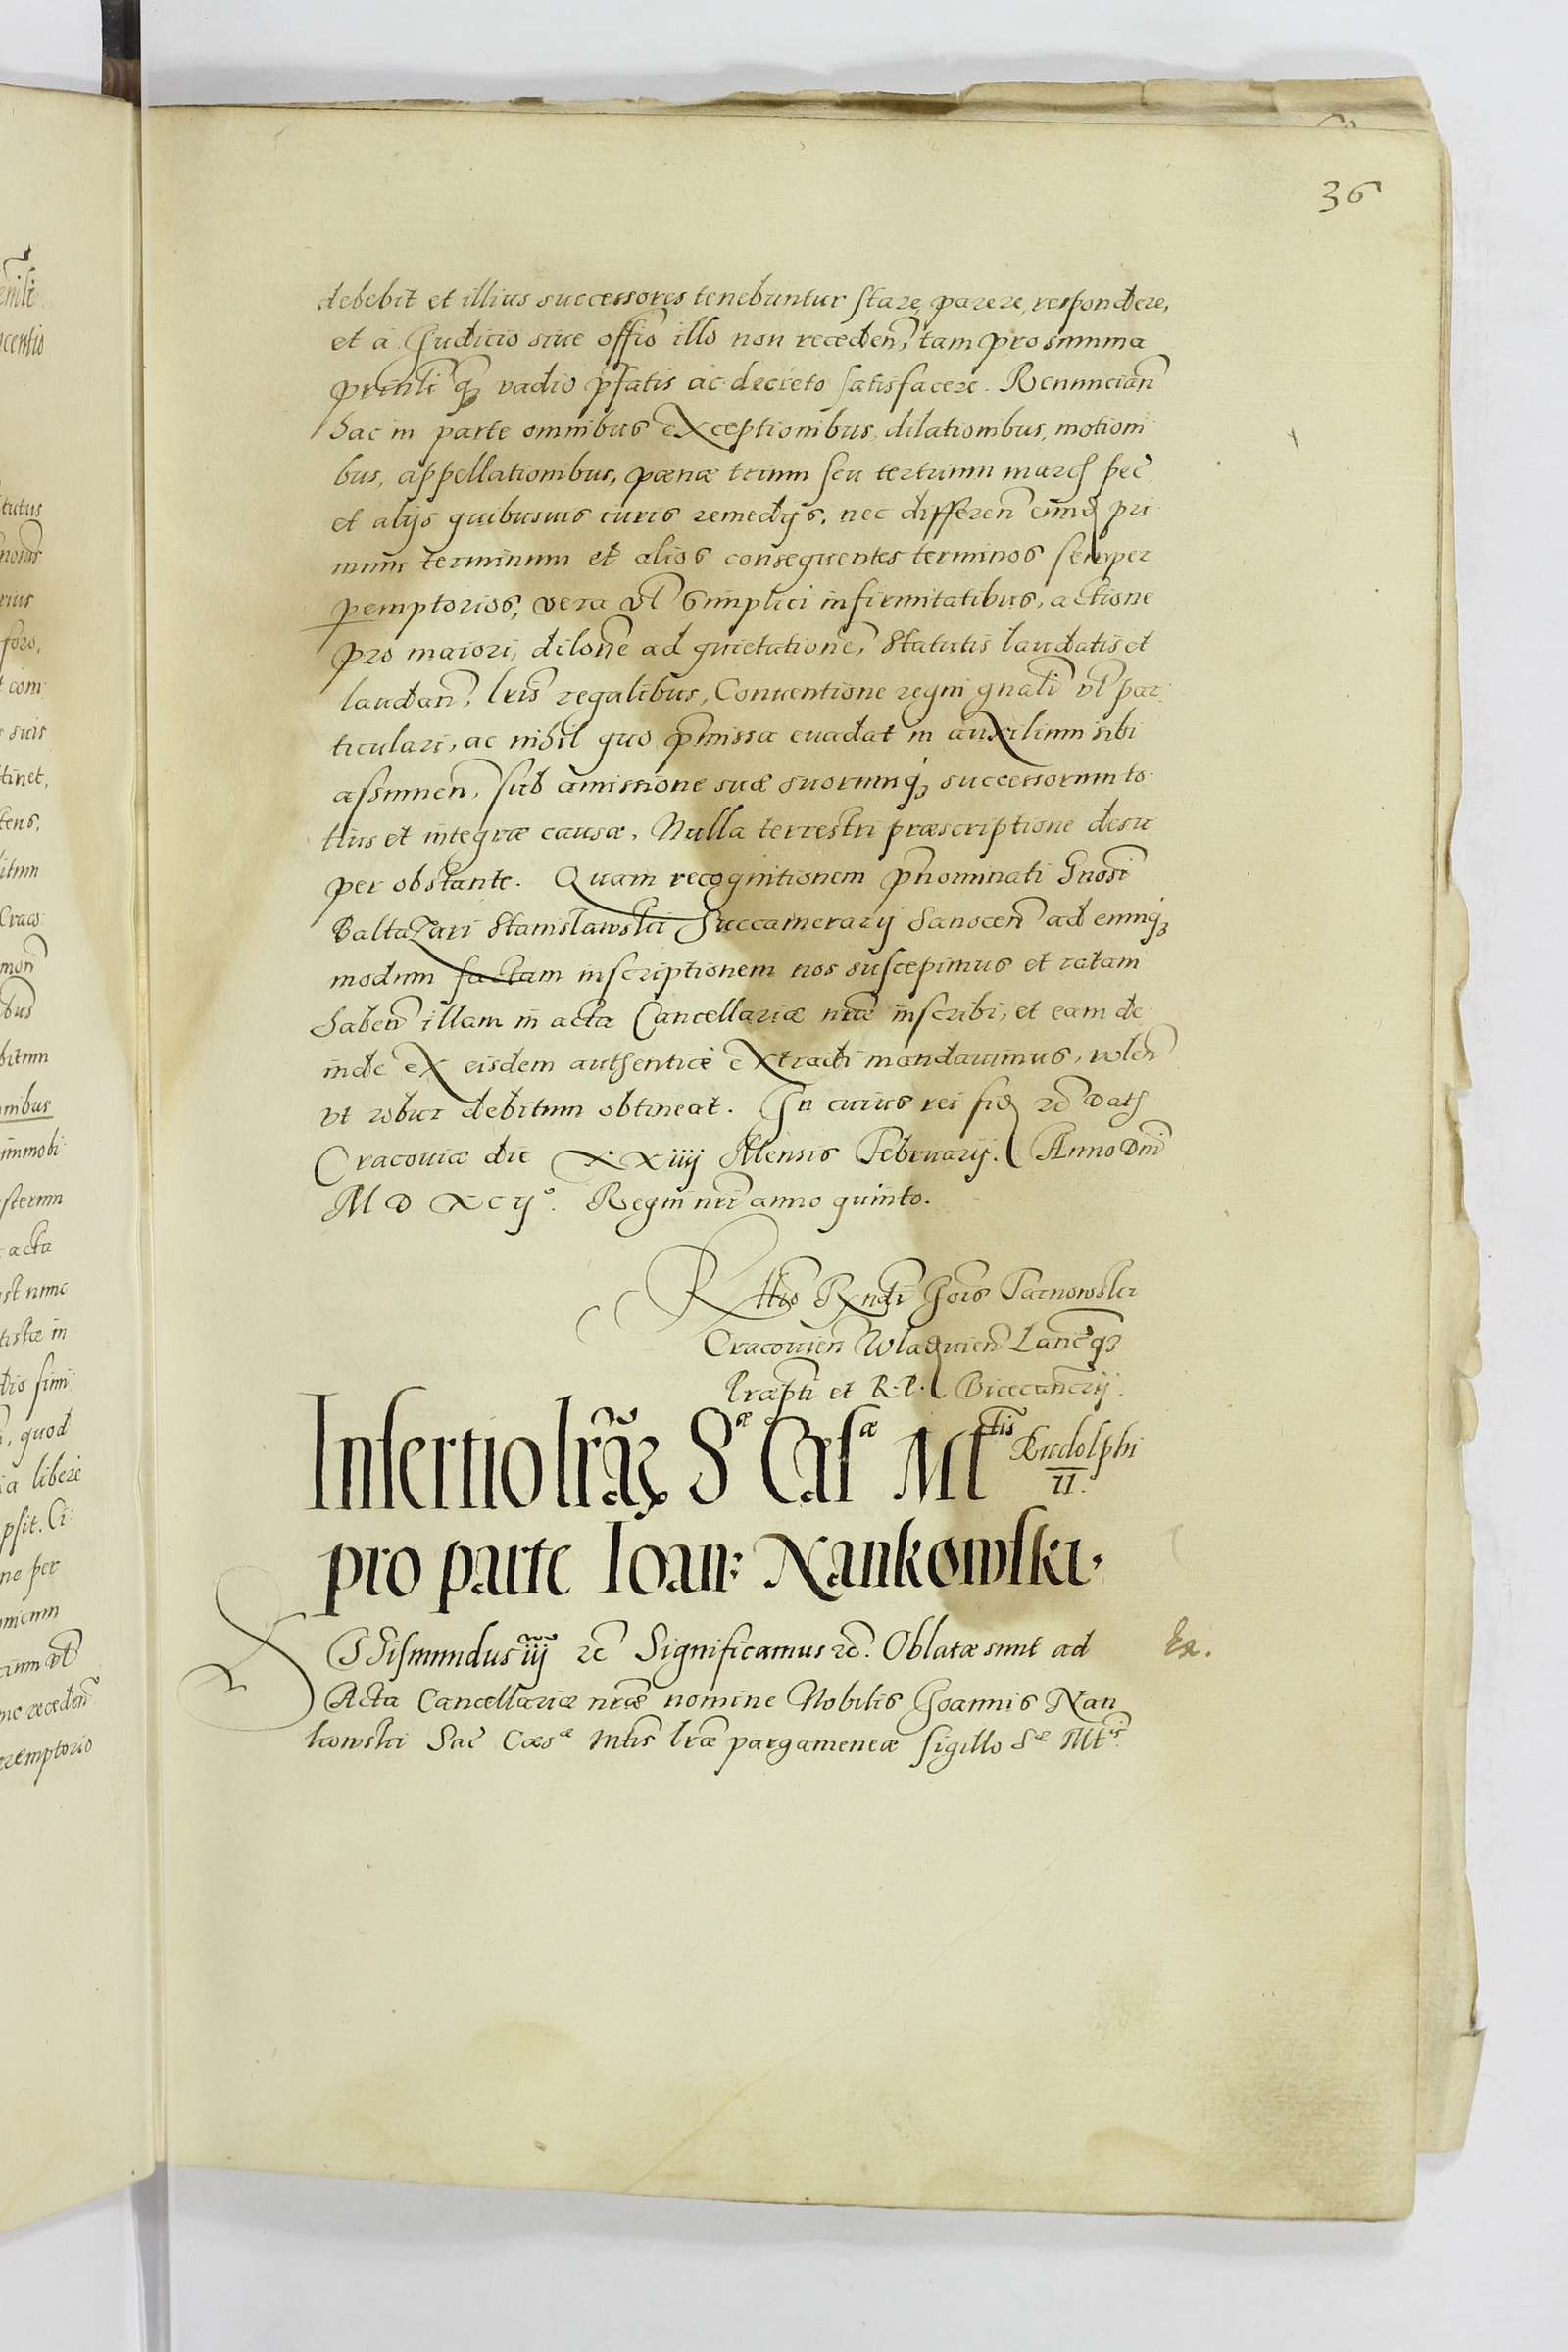 36
debebit et illius successores tenebuntur stare, parere, respondere,
et à Judicio siue offio illo non receden, tam pro summa
prinli q3 vadio pfatis ac decreto satisfacere. Renuncian
hac in parte omnibus exceptionibus, dilationibus, motioni
bus, appellationibus, pænæ trium seu tertiumn march pec
et alijs quibusuis iuris remedijs, nec differen eund pri
mum terminum et alios consequentes terminos semper
pemptorios, vera vl simplici infirmitatibus, actione
pro maiori, dilone ad quietatione, Statutis laudatis et
laudan, lris regalibus, Conuentione regni gnali vl par
ticulari, ac nihil quo pmissa euadat in auxilium sibi
assumen, sub amissione suæ suorumq3 successorum to
tius et integræ causæ, Nulla terrestri præscriptione desu
per obstante. Quam recognitionem pnominati Gnosi
Baltazari Stanislawski Succamerarij Sanocen ad eumq3
modum factam inscriptionem nos suscepimus et ratam
haben illam in acta Cancellariæ nræ inscribi, et eam de
inde ex eisdem authenticè extradi mandauimus, volen
vt robur debitum obtineat. In cuius rei fid &c Dat
Cracouiæ die XXiiij Mensis Februarij. Anno Dni
M D XCij°. Regni nri anno quinto.
Rtlio Rndi Jois Tarnowski
Cracouien Wladuien Lancq3
Præpti et R. P. Vicecancrij.
Insertio lraru Sæ Cæsæ Mttis Rudolphi
II.
pro parte Ioan: Nankowski.
SIgismundus iij &c Significamus &c. Oblatæ sunt ad
Ex.
Acta Cancellariæ nræ nomine Nobilis Joannis Nan
kowski Sac Cæsæ Mtis lræ pargameneæ sigillo Sæ Mtis